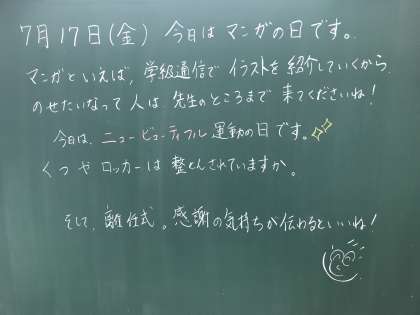 7月17日(金) 今日はマンガの日です。
マンガといえば、学級通信でイラストを紹介していくから
のせたいなって人は先生のところまで来てくださいね!
今日は、ニュービューティフル運動の日です。
くつやロッカーは整とんされていますか。
そして、離任式。感謝の気持ちが伝わるといいね!